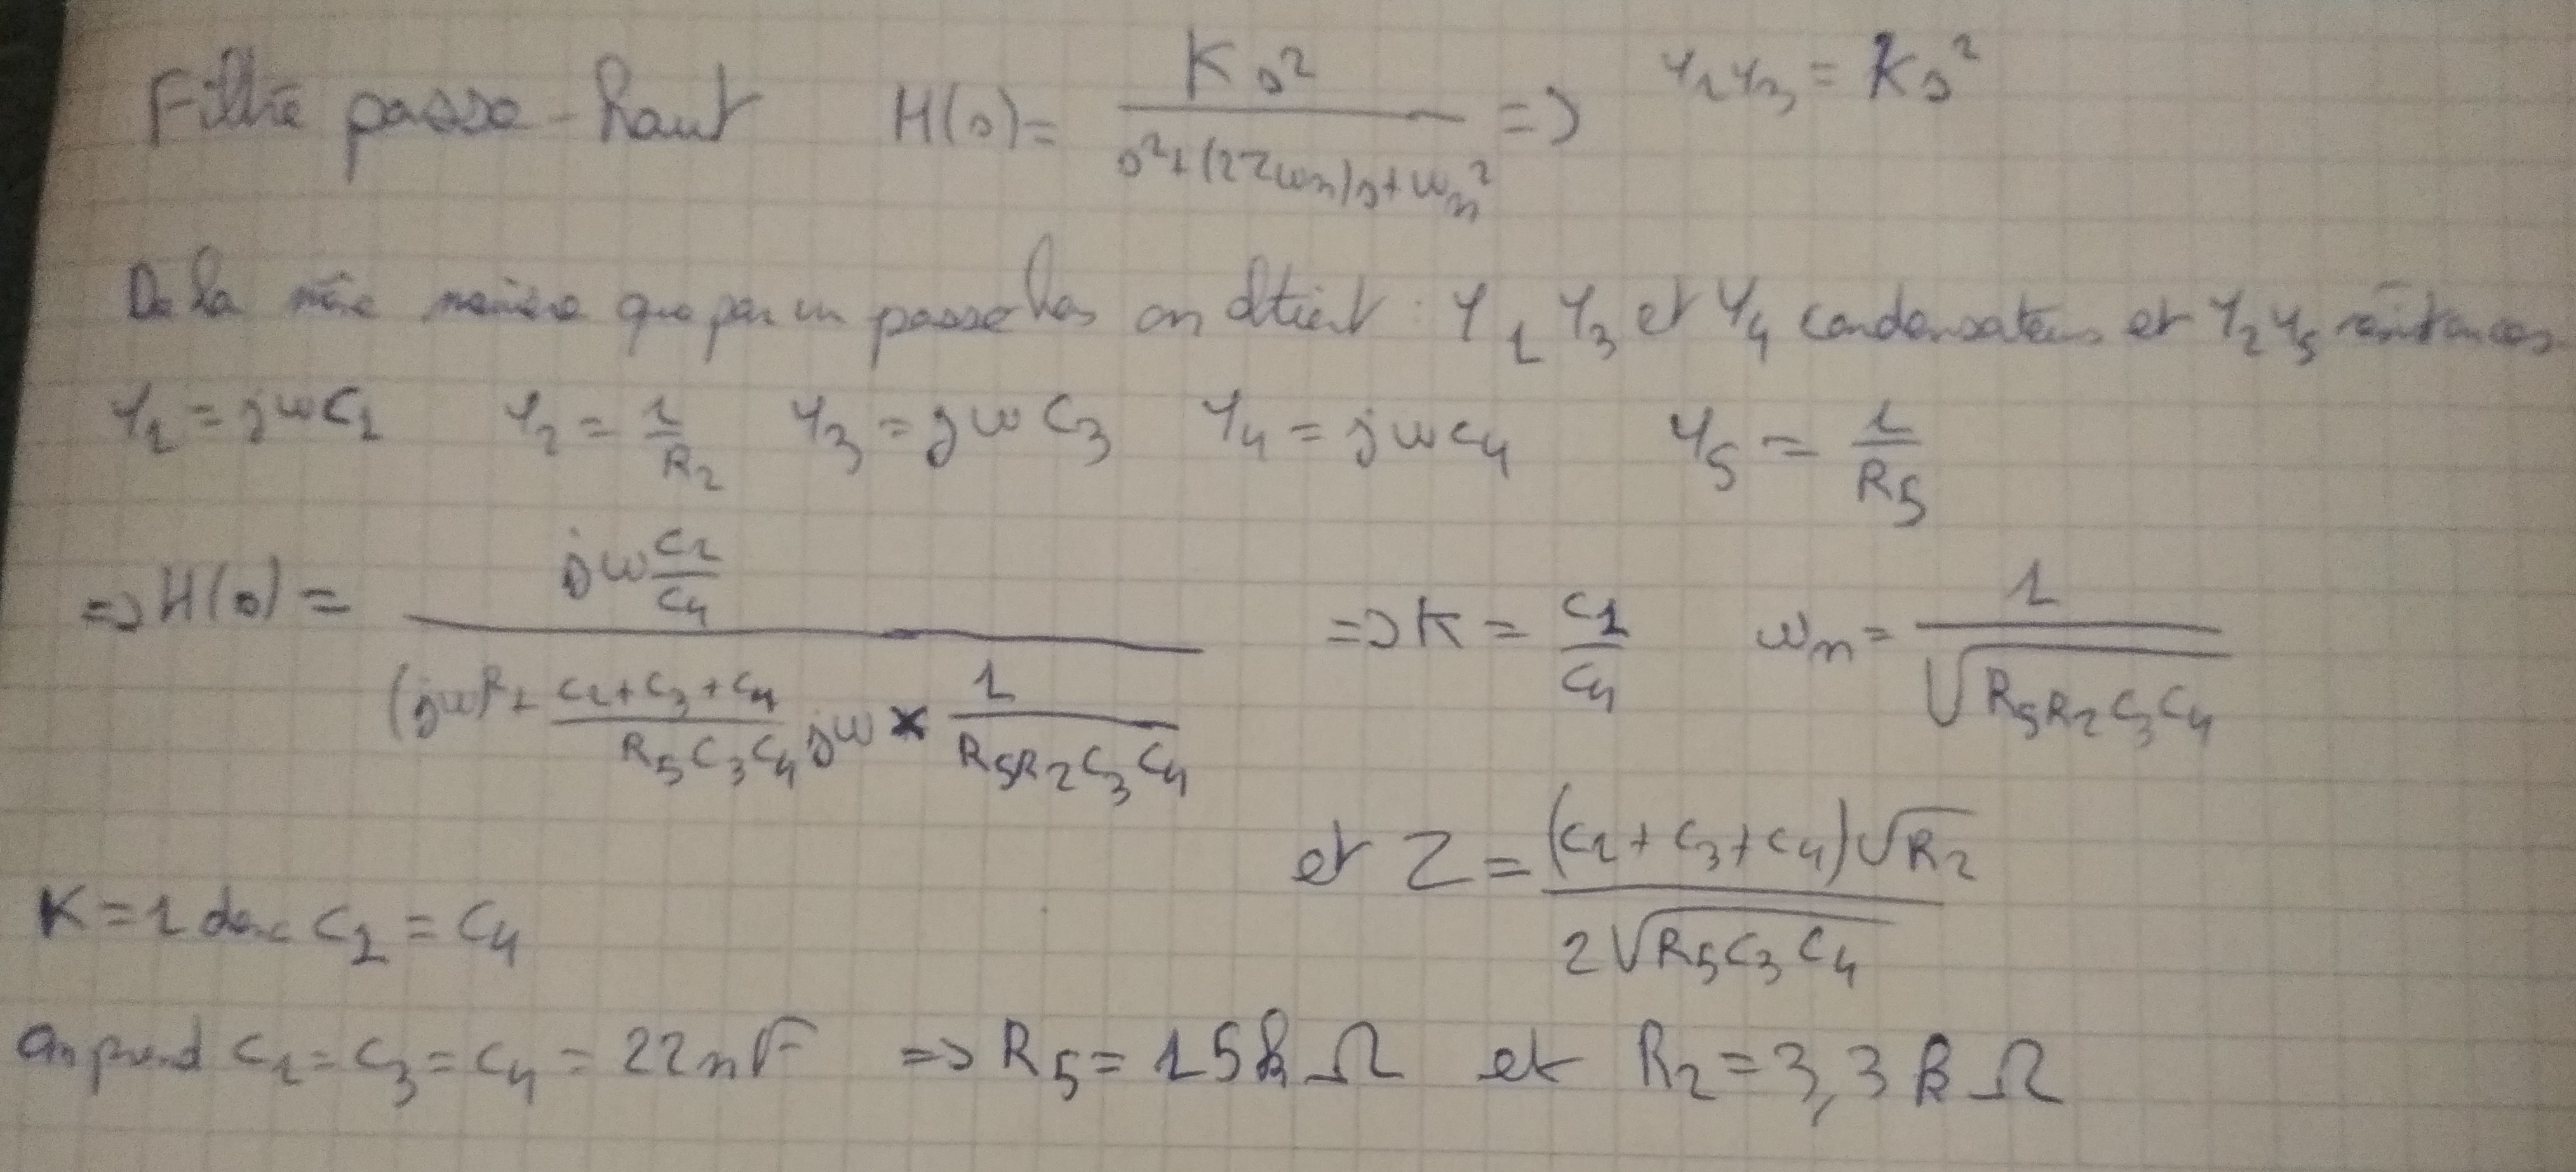 Filtre passe-haut H(s) = K s² / (s² + (2Zωn)s + ωn²) => Y1Y3 = Ks²
De la même manière que pour un passe bas on obtient : Y1 Y3 et Y4 condensateurs et Y2 Y5 résistances
Y1 = jωC1 Y2 = 1/R2 Y3 = jωC3 Y4 = jωC4 Y5 = 1/R5
=> H(s) = jω C1/C4 / ((jω)² + (C1+C3+C4)/(R5C3C4) jω × 1/(R5R2C3C4)) => K = C1/C4 ωn = 1/√(R5R2C3C4)
et Z = (C1+C3+C4)√R2 / (2√(R5C3C4))
K = 1 donc C1 = C4
On prend C1 = C3 = C4 = 22nF => R5 = 15kΩ et R2 = 3,3kΩ